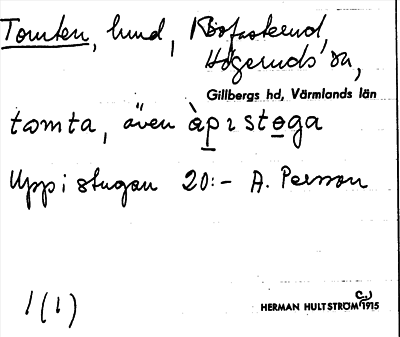 Tomten, lund, Rösfasterud,
Högeruds sn,
Gillbergs hd, Värmlands län
tomta, även àpıstoga
Uppi stugan 20:- A. Persson
1(1)
HERMAN HULTSTRÖM C. 1915